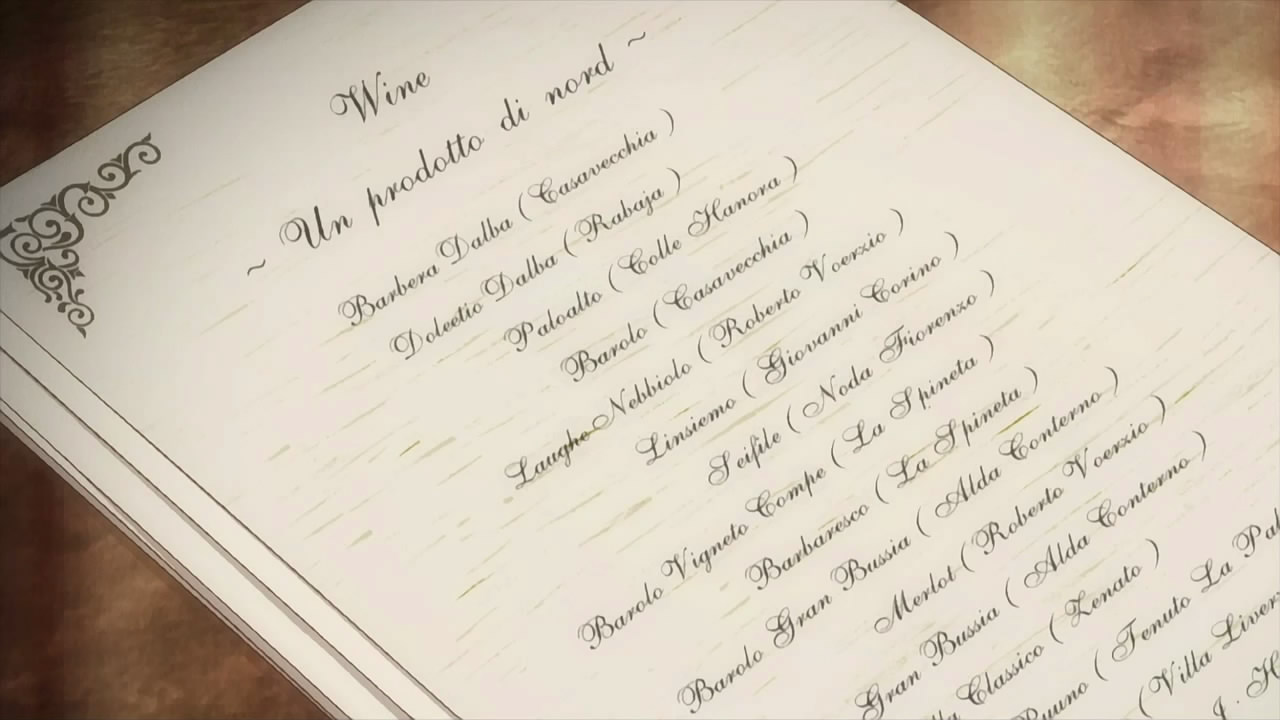 Wine
~ Un prodotto di nord ~
Barbera Dalba ( Casavecchia )
Dolcetio Dalba ( Rabaja )
Paloalto ( Colle Hanora )
Barolo ( Casavecchia )
Laughe Nebbiolo ( Roberto Voerzio )
Linsiemo ( Giovanni Corino )
Seifile ( Noda Fiorenzo )
Barolo Vigneto Compe ( La Spineta )
Barbaresco ( La Spineta )
Barolo Gran Bussia ( Alda Conterno )
Merlot ( Roberto Voerzio )
Gran Bussia ( Alda Conterno )
Classico ( Zenato )
( Tenuto La
( Villa